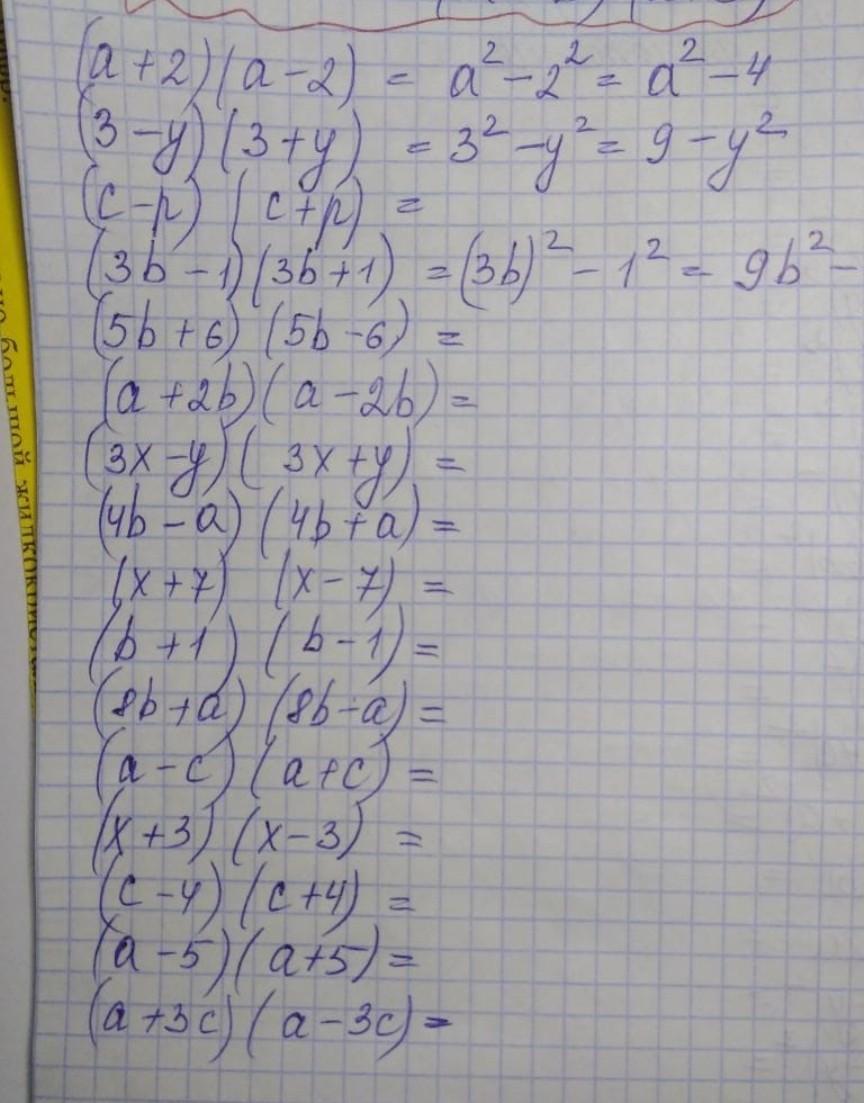 (a+2)(a-2) = a² - 2² = a² - 4
(3-y)(3+y) = 3² - y² = 9 - y²
(c-p)(c+p) =
(3b-1)(3b+1) = (3b)² - 1² = 9b² -
(5b+6)(5b-6) =
(a+2b)(a-2b) =
(3x-y)(3x+y) =
(4b-a)(4b+a) =
(x+7)(x-7) =
(b+1)(b-1) =
(8b+a)(8b-a) =
(a-c)(a+c) =
(x+3)(x-3) =
(c-4)(c+4) =
(a-5)(a+5) =
(a+3c)(a-3c) =